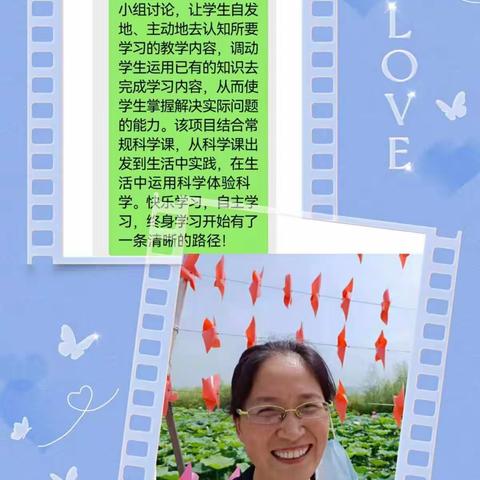 小组讨论，让学生自发
地、主动地去认知所要
学习的教学内容，调动
学生运用已有的知识去
完成学习内容，从而使
学生掌握解决实际问题
的能力。该项目结合常
规科学课，从科学课出
发到生活中实践，在生
活中运用科学体验科
学。快乐学习，自主学
习，终身学习开始有了
一条清晰的路径！
LOVE